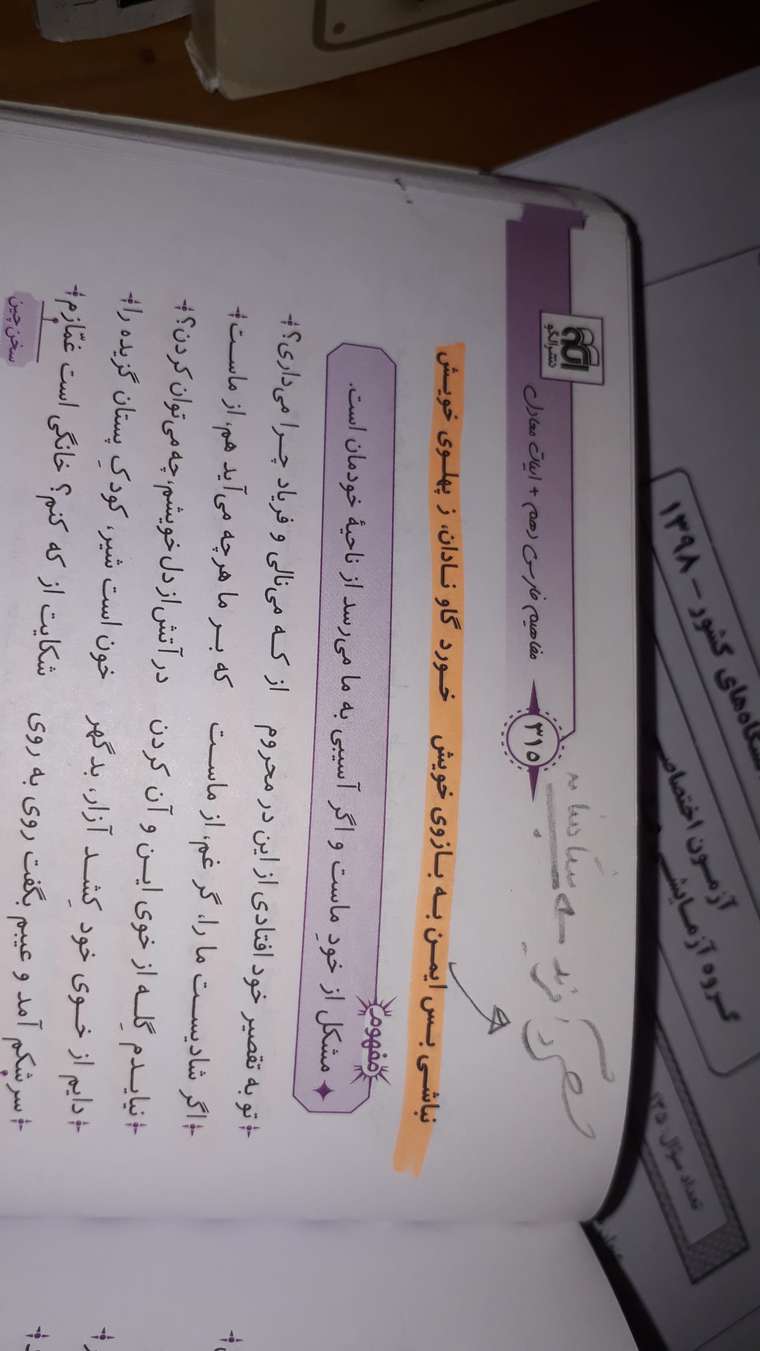 نشر الگو
مفاهیم فارسی دهم + ابیات معادل
۳۱۵
نباشی بس ایمن به بازوی خویش خورد گاو نادان، ز پهلوی خویش
مفهوم
مشکل از خودِ ماست و اگر آسیبی به ما می‌رسد از ناحیهٔ خودمان است.
تو به تقصیر خود افتادی از این در محروم از که می‌نالی و فریاد چرا می‌داری؟
اگر شادیست ما را، گر غم، از ماست که بر ما هرچه می‌آید هم، از ماست
نیایدم گِله از خوی این و آن کردن در آتش از دل خویشم، چه می‌توان کردن؟
دایم از خوی خود کِشد آزار، بدگهر خون است شیر، کودکِ پستان گزیده را
سرشکم آمد و عیبم بگفت روی به روی شکایت از که کنم؟ خانگی است غمّازم
سخن چین
گاه‌های کشور - ۱۳۹۸
آزمون اختصاصی
گروه آزمایشی
تعداد سؤال: ۱۳۵